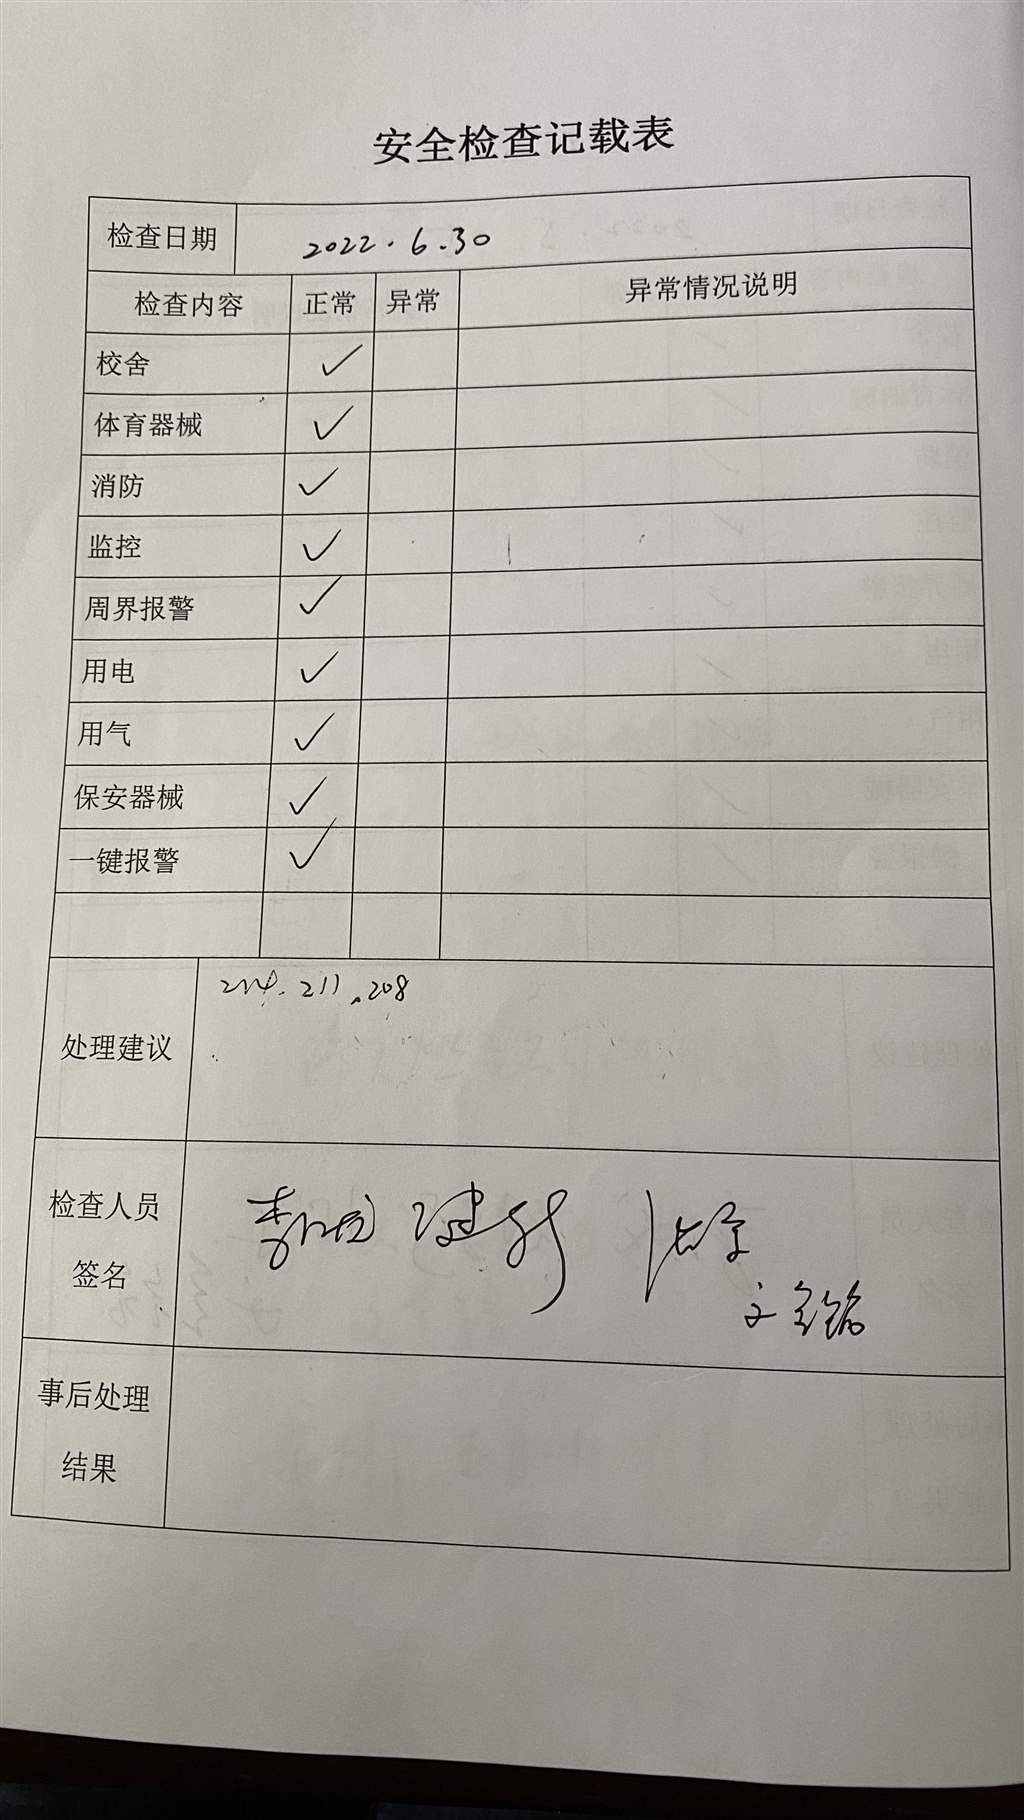 安全检查记载表
检查日期 2022.6.30
检查内容 正常 异常 异常情况说明
校舍 ✓
体育器械 ✓
消防 ✓
监控 ✓
周界报警 ✓
用电 ✓
用气 ✓
保安器械 ✓
一键报警 ✓
211.208
处理建议
检查人员
签名
事后处理
结果